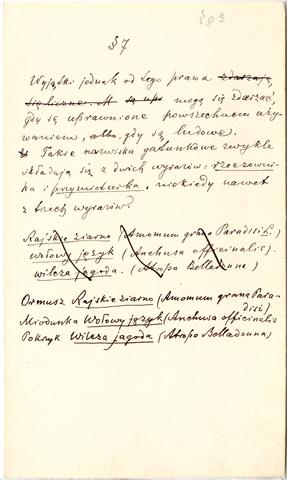 § 8ª
§ 7
Wyjątki jednak od tego prawa zdarzają
się liczne. M są upr mogą się zdarzać,
gdy są uprawnione powszechnem uży-
waniem, albo gdy są ludowe.
Takie nazwiska gatunkowe zwykle
składają się z dwóch wyrazów: rzeczowni-
ka i przymiotnika, niekiedy nawet
z trzech wyrazów
Rajskie ziarno (Amomum grana Paradisi L.)
wołowy język (Anchusa officinalis).
wilcza jagoda. (Atropa Belladonna)
Ormusz Rajskie ziarno (Amomum grana Para-
disi)
Miodunka Wołowy język (Anchusa officinalis
Pokrzyk Wilcza jagoda (Atropa Belladonna)